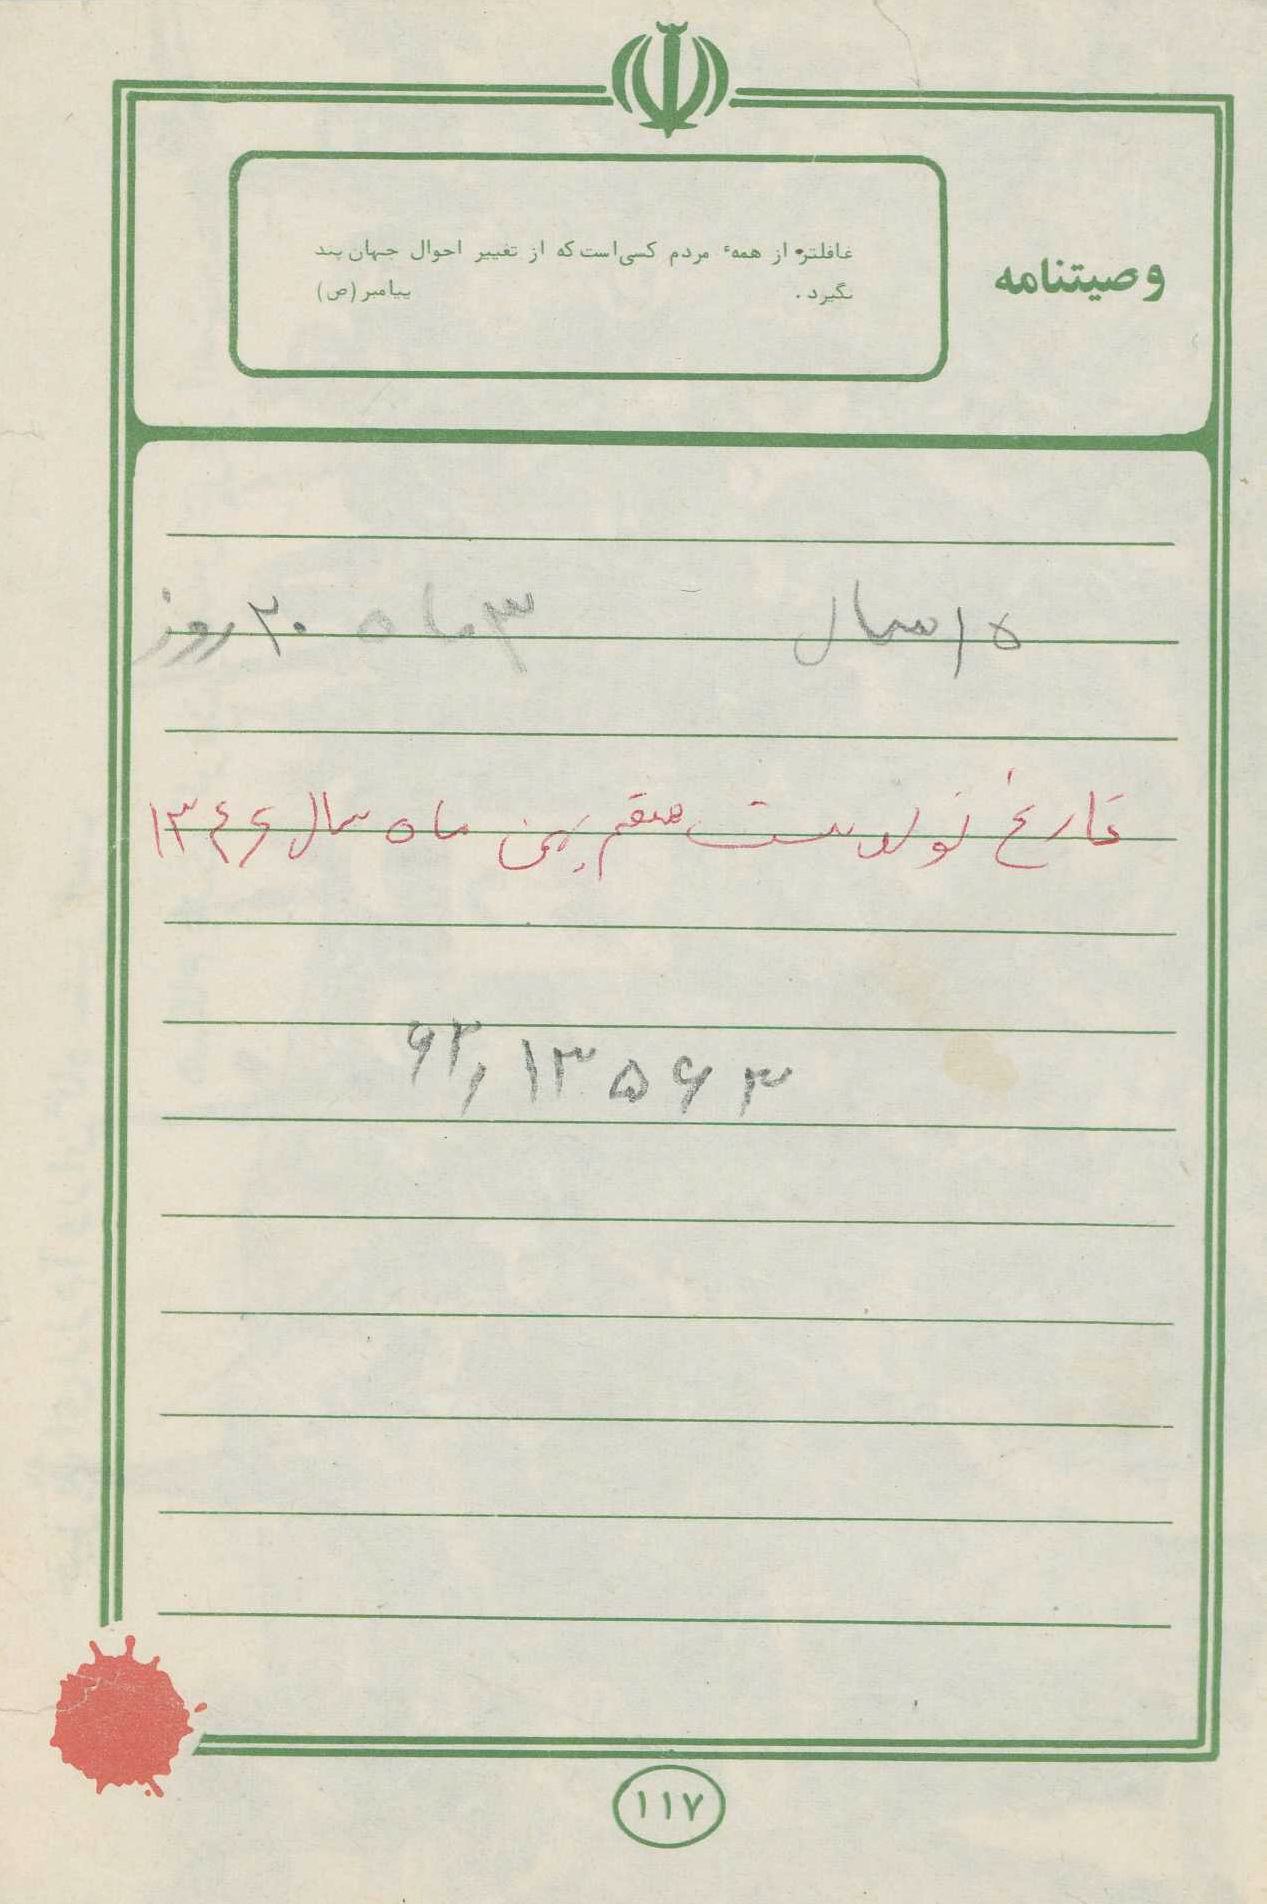 وصیتنامه
غافلتر از همهٔ مردم کسی است که از تغییر احوال جهان پند
نگیرد. پیامبر (ص)
۱۵ سال ۳ ماه ۲۰ روز
تاریخ تولد بیست هفتم بهمن ماه سال ۱۳۴۶
۶۲, ۱۳۵۶۳
۱۱۷